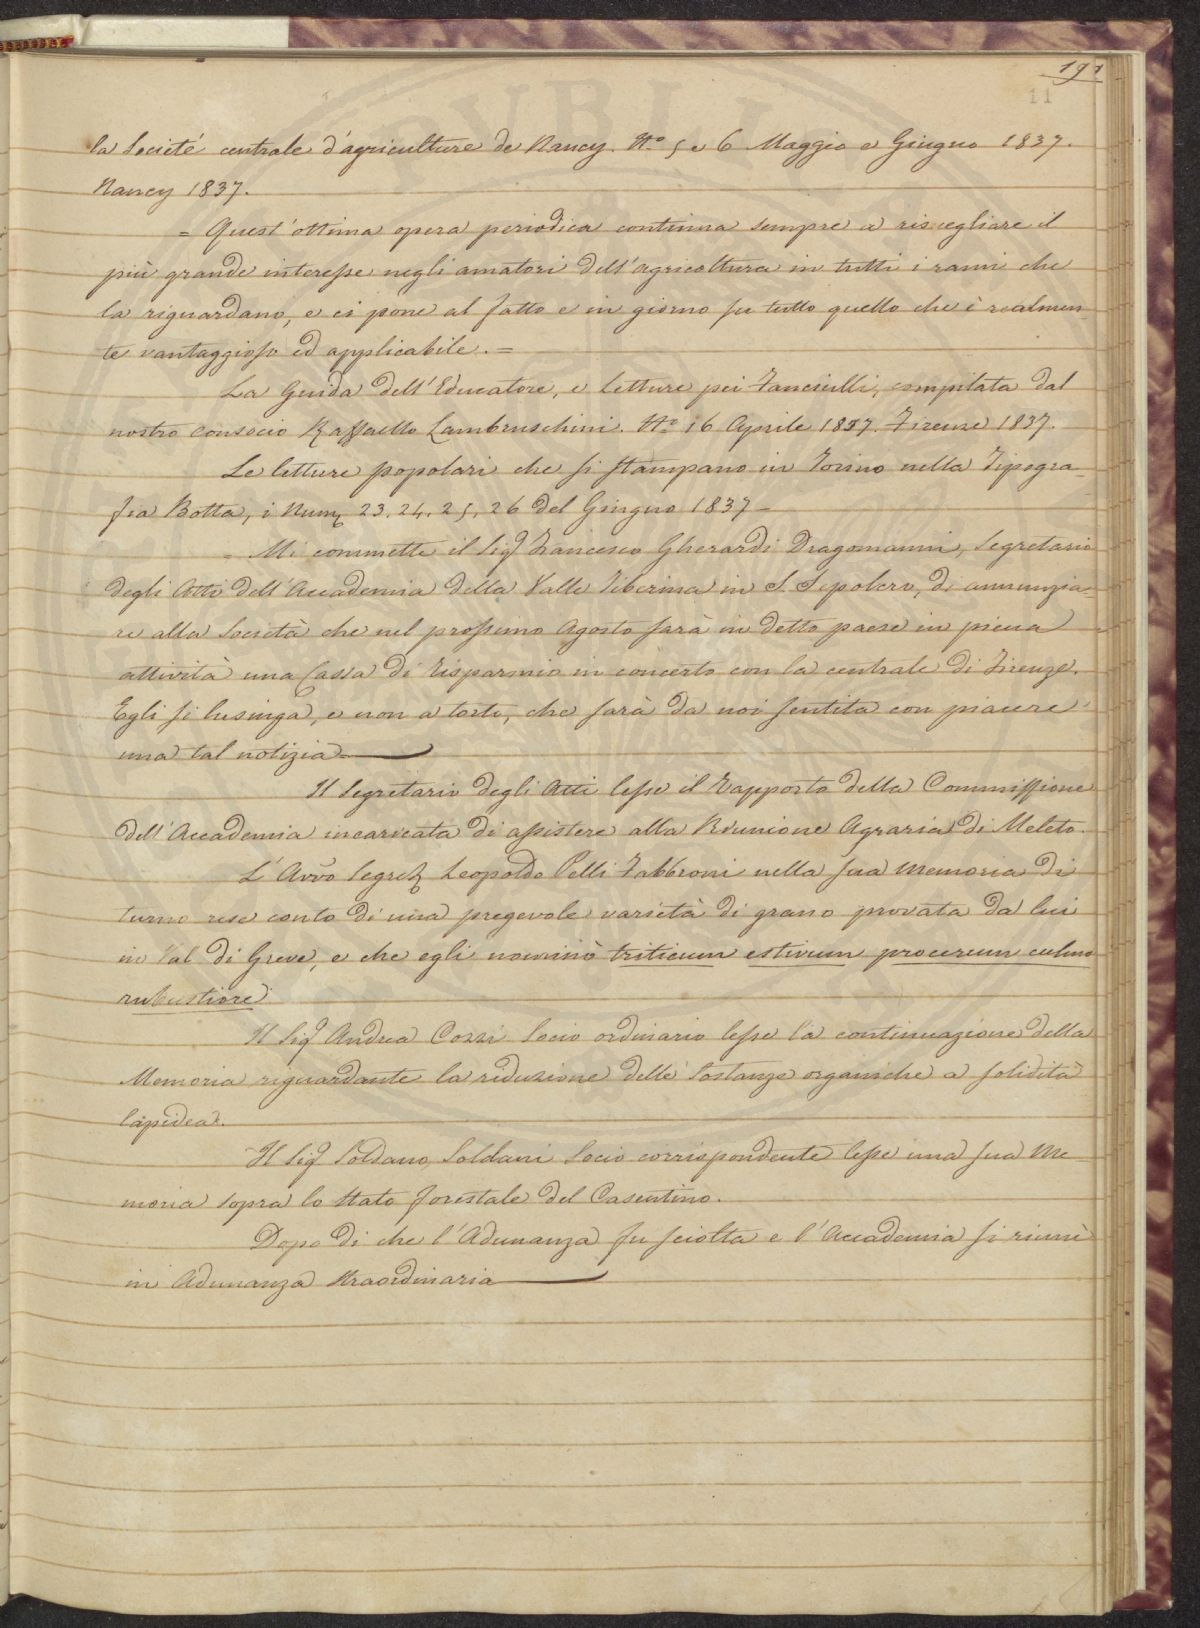 191
11
la Societé centrale d'agriculture de Nancy. N.º 5 e 6 Maggio e Giugno 1837.
Nancy 1837.
= Quest'ottima opera periodica continua sempre a risvegliare il
più grande interesse negli amatori dell'agricoltura in tutti i rami che
la riguardano, e ci pone al fatto e in giorno su tutto quello che è realmen-
te vantaggioso ed applicabile. =
La Guida dell'Educatore, e letture pei Fanciulli, compilata dal
nostro consocio Raffaello Lambruschini. N.º 16 Aprile 1837. Firenze 1837.
Le letture popolari che si stampano in Torino nella Tipogra-
fia Botta, i Num. 23. 24. 25. 26 del Giugno 1837 -
= Mi commette il Sig.r Francesco Gherardi Dragomanni, Segretario
degli Atti dell'Accademia della Valle Tiberina in S. Sepolcro, di annunzia-
re alla Società che nel prossimo Agosto sarà in detto paese in piena
attività una Cassa di Risparmio in concerto con la centrale di Firenze.
Egli si lusinga, e non a torto, che sarà da noi sentita con piacere
una tal notizia =
Il Segretario degli Atti lesse il Rapporto della Commissione
dell'Accademia incaricata di assistere alla Riunione Agraria di Meleto.
L'Avv.o Segret. Leopoldo Pelli Fabbroni nella sua Memoria di
turno rese conto di una pregevole varietà di grano provata da lui
in Val di Greve, e che egli nominò triticum estivum procerum culmo
rubustiore
Il Sig.r Andrea Cozzi Socio ordinario lesse la continuazione della
Memoria riguardante la riduzione delle Sostanze organiche a solidità
lapidea.
Il Sig.r Soldano Soldani Socio corrispondente lesse una sua Me
moria sopra lo stato forestale del Casentino.
Dopo di che l'Adunanza fu sciolta e l'Accademia si riunì
in Adunanza Straordinaria